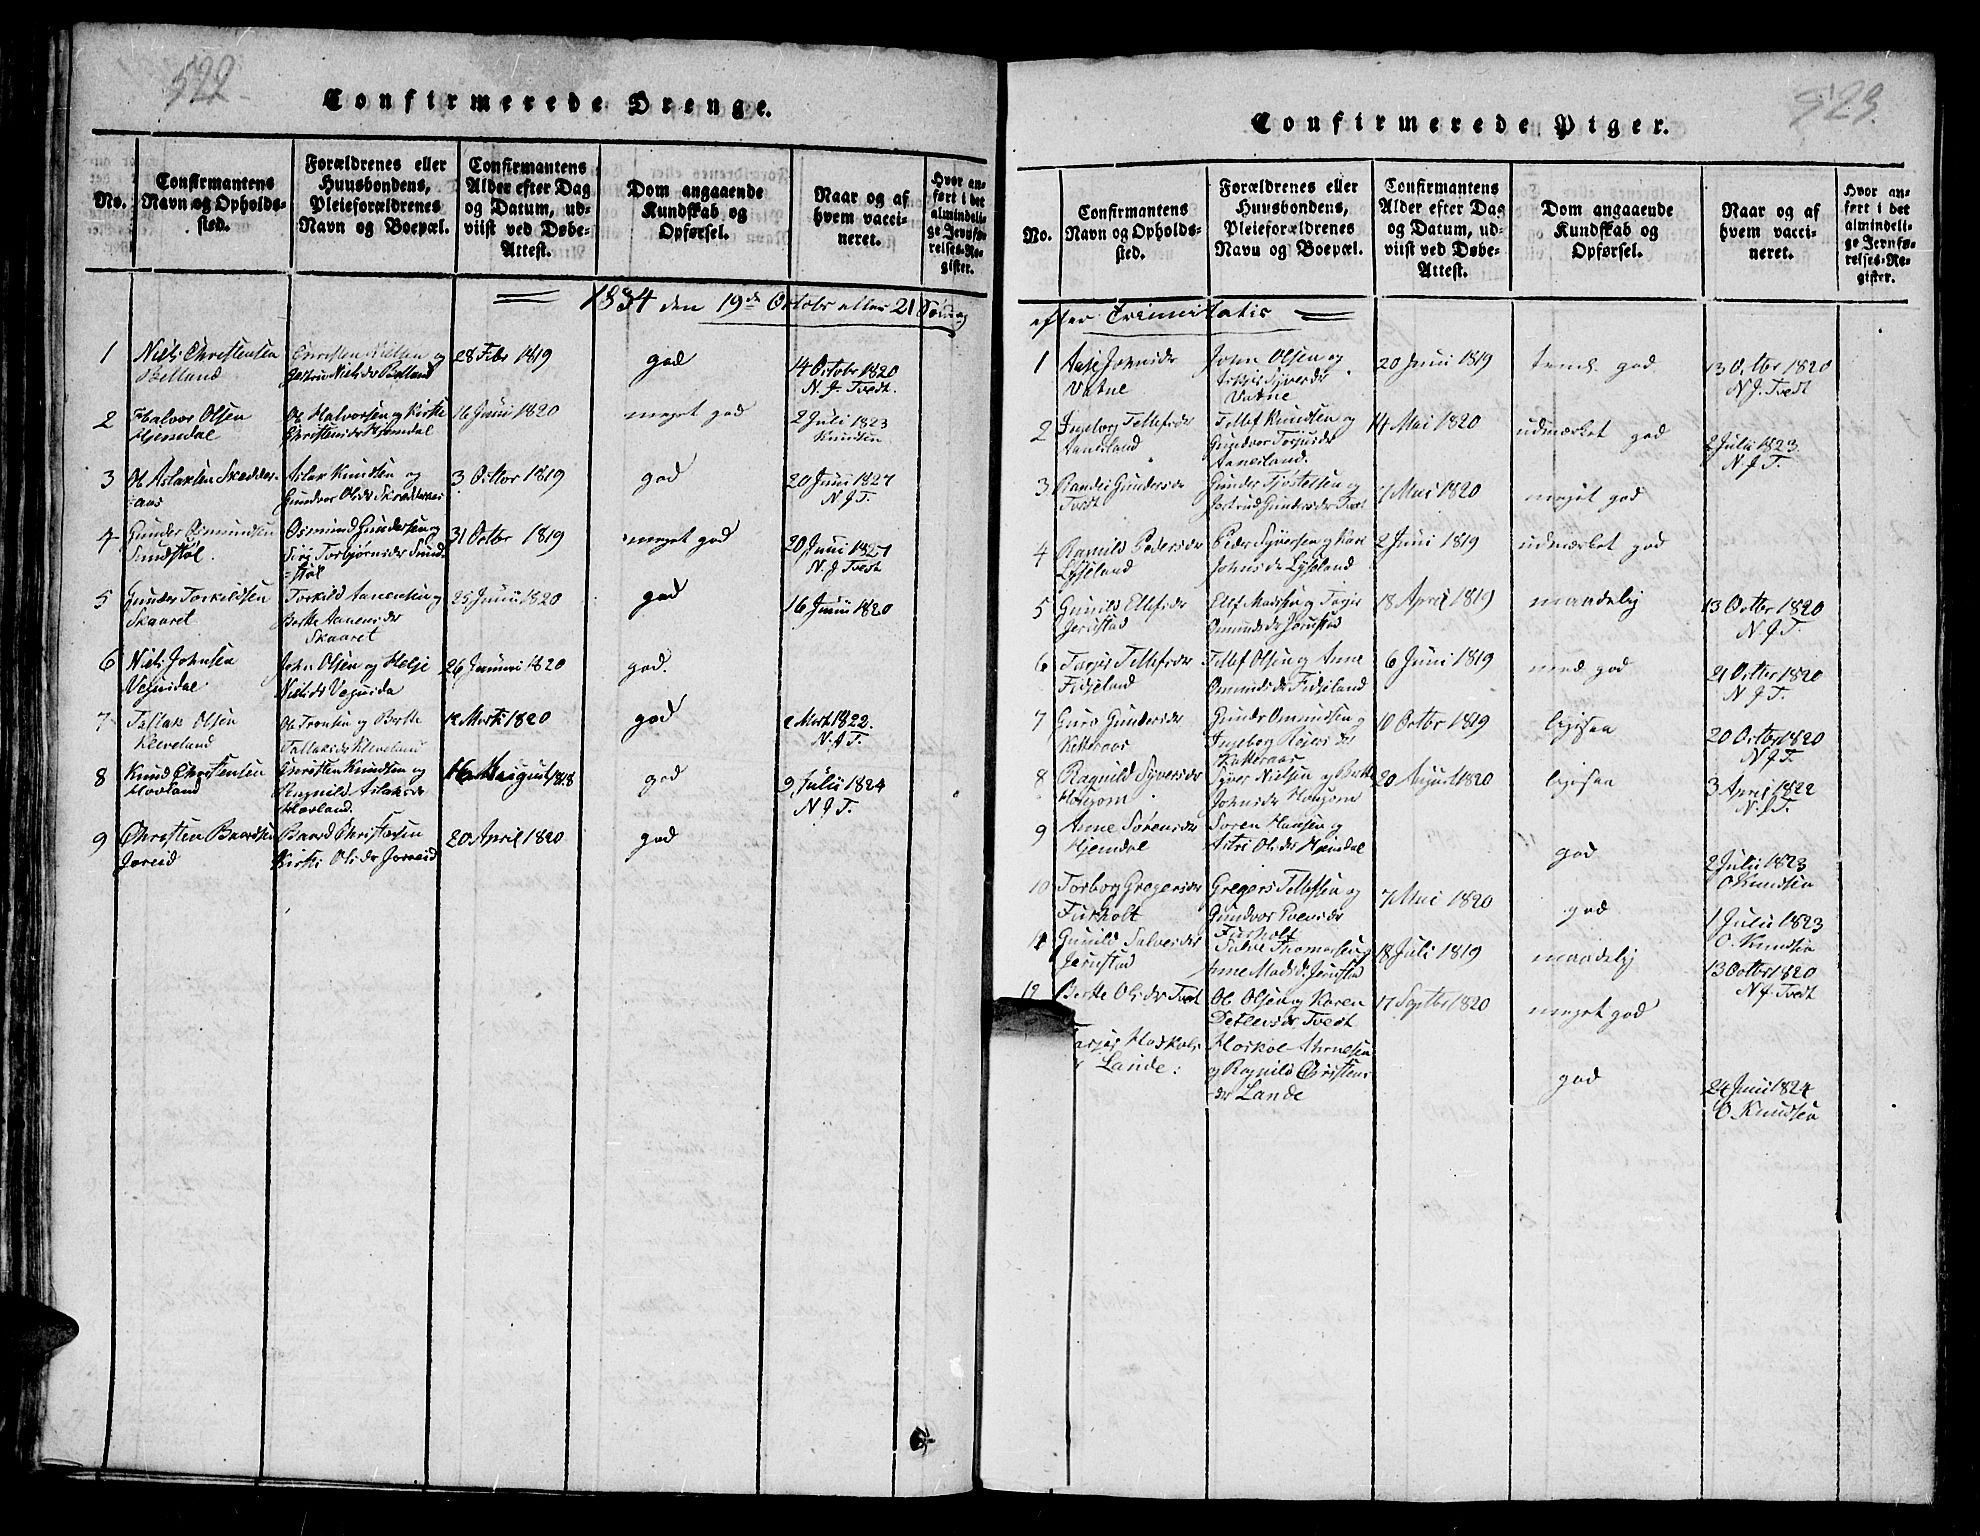 522
Confirmerede Drenge.
No.
Confirmantens
Navn og Opholds-
sted.
Forældrenes eller
Huusbondens,
Pleieforældrenes
Navn og Boepæl.
Confirmantens
Alder efter Dag
og Datum, ud-
viist ved Døbe-
Attest.
Dom angaaende
Kundskab og
Opførsel.
Naar og af
hvem vacci-
neret.
Hvor an-
ført i det
almindeli-
ge Jevnfø-
relses-Re-
gister.
1834 den 19de Octobr eller 21 Søndag
1
Niels Christensen
Belland
Christen Nielsen og
Nielsdr Belland
28 Febr 1819
god
14 Octobr 1820
N. J. Tvedt.
2
Halvor Olsen
Hjemdal
Ol Halvorsen og Kirste
Christensdr Hjemdal
16 Junii 1820
meget god
2 Juli 1823
Knudsen
3
Ol Aslaksen Skedder-
aas
Aslak Knudsen og
Gundvor Olsdr
3 Octbr 1819
god
20 Junii 1827
N. J. T.
4
Gunder Osmundsen
Sundstøl
Osmund Gundersen og
Siri Torbjørnsdr Sund-
støl
31 Octbr 1819
meget god
20 Junii 1827
N. J. Tvedt
5
Gunder Torkildsen
Skaaret
Torkild Aanensen og
Berte Aanensdr
Skaaret
25 Junii 1820
god
16 Junii 1820
6
Niels Johnsen
Vegusdal
John Olsen og Helje
Nielsdr Vegusda
26 Januari 1820
god.
7
Tallak Olsen
Kleveland
Ole Tronsen og Berthe
Tallaksdr Kleveland
12 Marti 1820
god
Mart 1822.
N. J. T.
8
Knud Christensen
Hovland
Christen Knudsen og
Ragnild Aslaksdr
Hovland.
August 1818
god
9 Julii 1824
N J T.
9
Christen Baardsen
Joreid
Baard Christensen
Kirsti Olsdr Joreid
20 April 1820
god
523
Confirmerede Piger.
No.
Confirmantens
Navn og Opholds-
sted.
Forældrenes eller
Huusbondens,
Pleieforældrenes
Navn og Boepæl.
Confirmantens
Alder efter Dag
og Datum, ud-
viist ved Døbe-
Attest.
Dom angaaende
Kundskab og
Opførsel.
Naar og af
hvem vacci-
neret.
Hvor an-
ført i det
almindeli-
ge Jevnfø-
relses-Re-
gister.
efter Trinitatis
1
Aase Johnsdr
Vatne
John Olsen og
Syversdr
Vatne
20 Junii 1819
god
13 Octbr 1820
N. J. Tvedt
2
Ingeborg Tellefsdr
Aanesland
Tellef Knudsen og
Gundvor Torjusdr
Aanesland.
14 Mai 1820
udmærket god
2 Julii 1823
N. J T.
3
Randi Gundersdr
Tvedt
Gunder Tjøstelsen og
Jorand Gundersdr Tvet
7 Mai 1820
meget god
4
Ragnild Pedersdr
Lysland
Peder Syversen og Kari
Johnsdr Lyseland
2 Juni 1819
udmærket god
5
Gunild Ellefsdr
Jerustad
Ellef Madsen og Torjer
Omundsdr Jerustad
18 April 1819
maadelig
13 Octbr 1820
N. J T.
6
Torjer Tellefsdr
Fidjeland
Tellef Olsen og Anne
Omundsdr Fidjeland
6 Juni 1819
med god
21 Octbr 1820
N. J T.
7
Guro Gundersdr
Ketteraas
Gunder Omundsen og
Ingebog Røiersdr
Ketteraas
10 Octbr 1819
ligesaa
20 Octbr 1820
N. J T.
8
Ragnild Syversdr
Høigom
Syver Nielsen og Berte
Johnsdr Høigom
20 August 1820
ligesaa
3 April 1822
N. J T.
9
Anne Sørensdr
Hjemdal
Soren Hansen og
Astri Olsdr Hjemdal
god
2 Julii 1823
O Knudsen
10
Torborg Gregersdr
Furholt
Gregers Tellefsen og
Gundvor Evensdr
Furholt
7 Mai 1820
god
1 Julii 1823
O. Knudsen
11
Gunild Salvesdr
Jerustad
Salve Thomassen og
Anne Madsdr Jerustad
18 Juli 1819
maadelig
13 Octbr 1820
N J. Tvedt
12
Berte Olsdr Tvet
Ol Olsen og Karen
Detlevsdr Tvedt
17 Septbr 1820
meget god
Torjer Hoskolds
Lande:
Hoskol Arnesen
og Ragnild Christens
dr Lande
god
24 Junii 1824
O. Knudsen